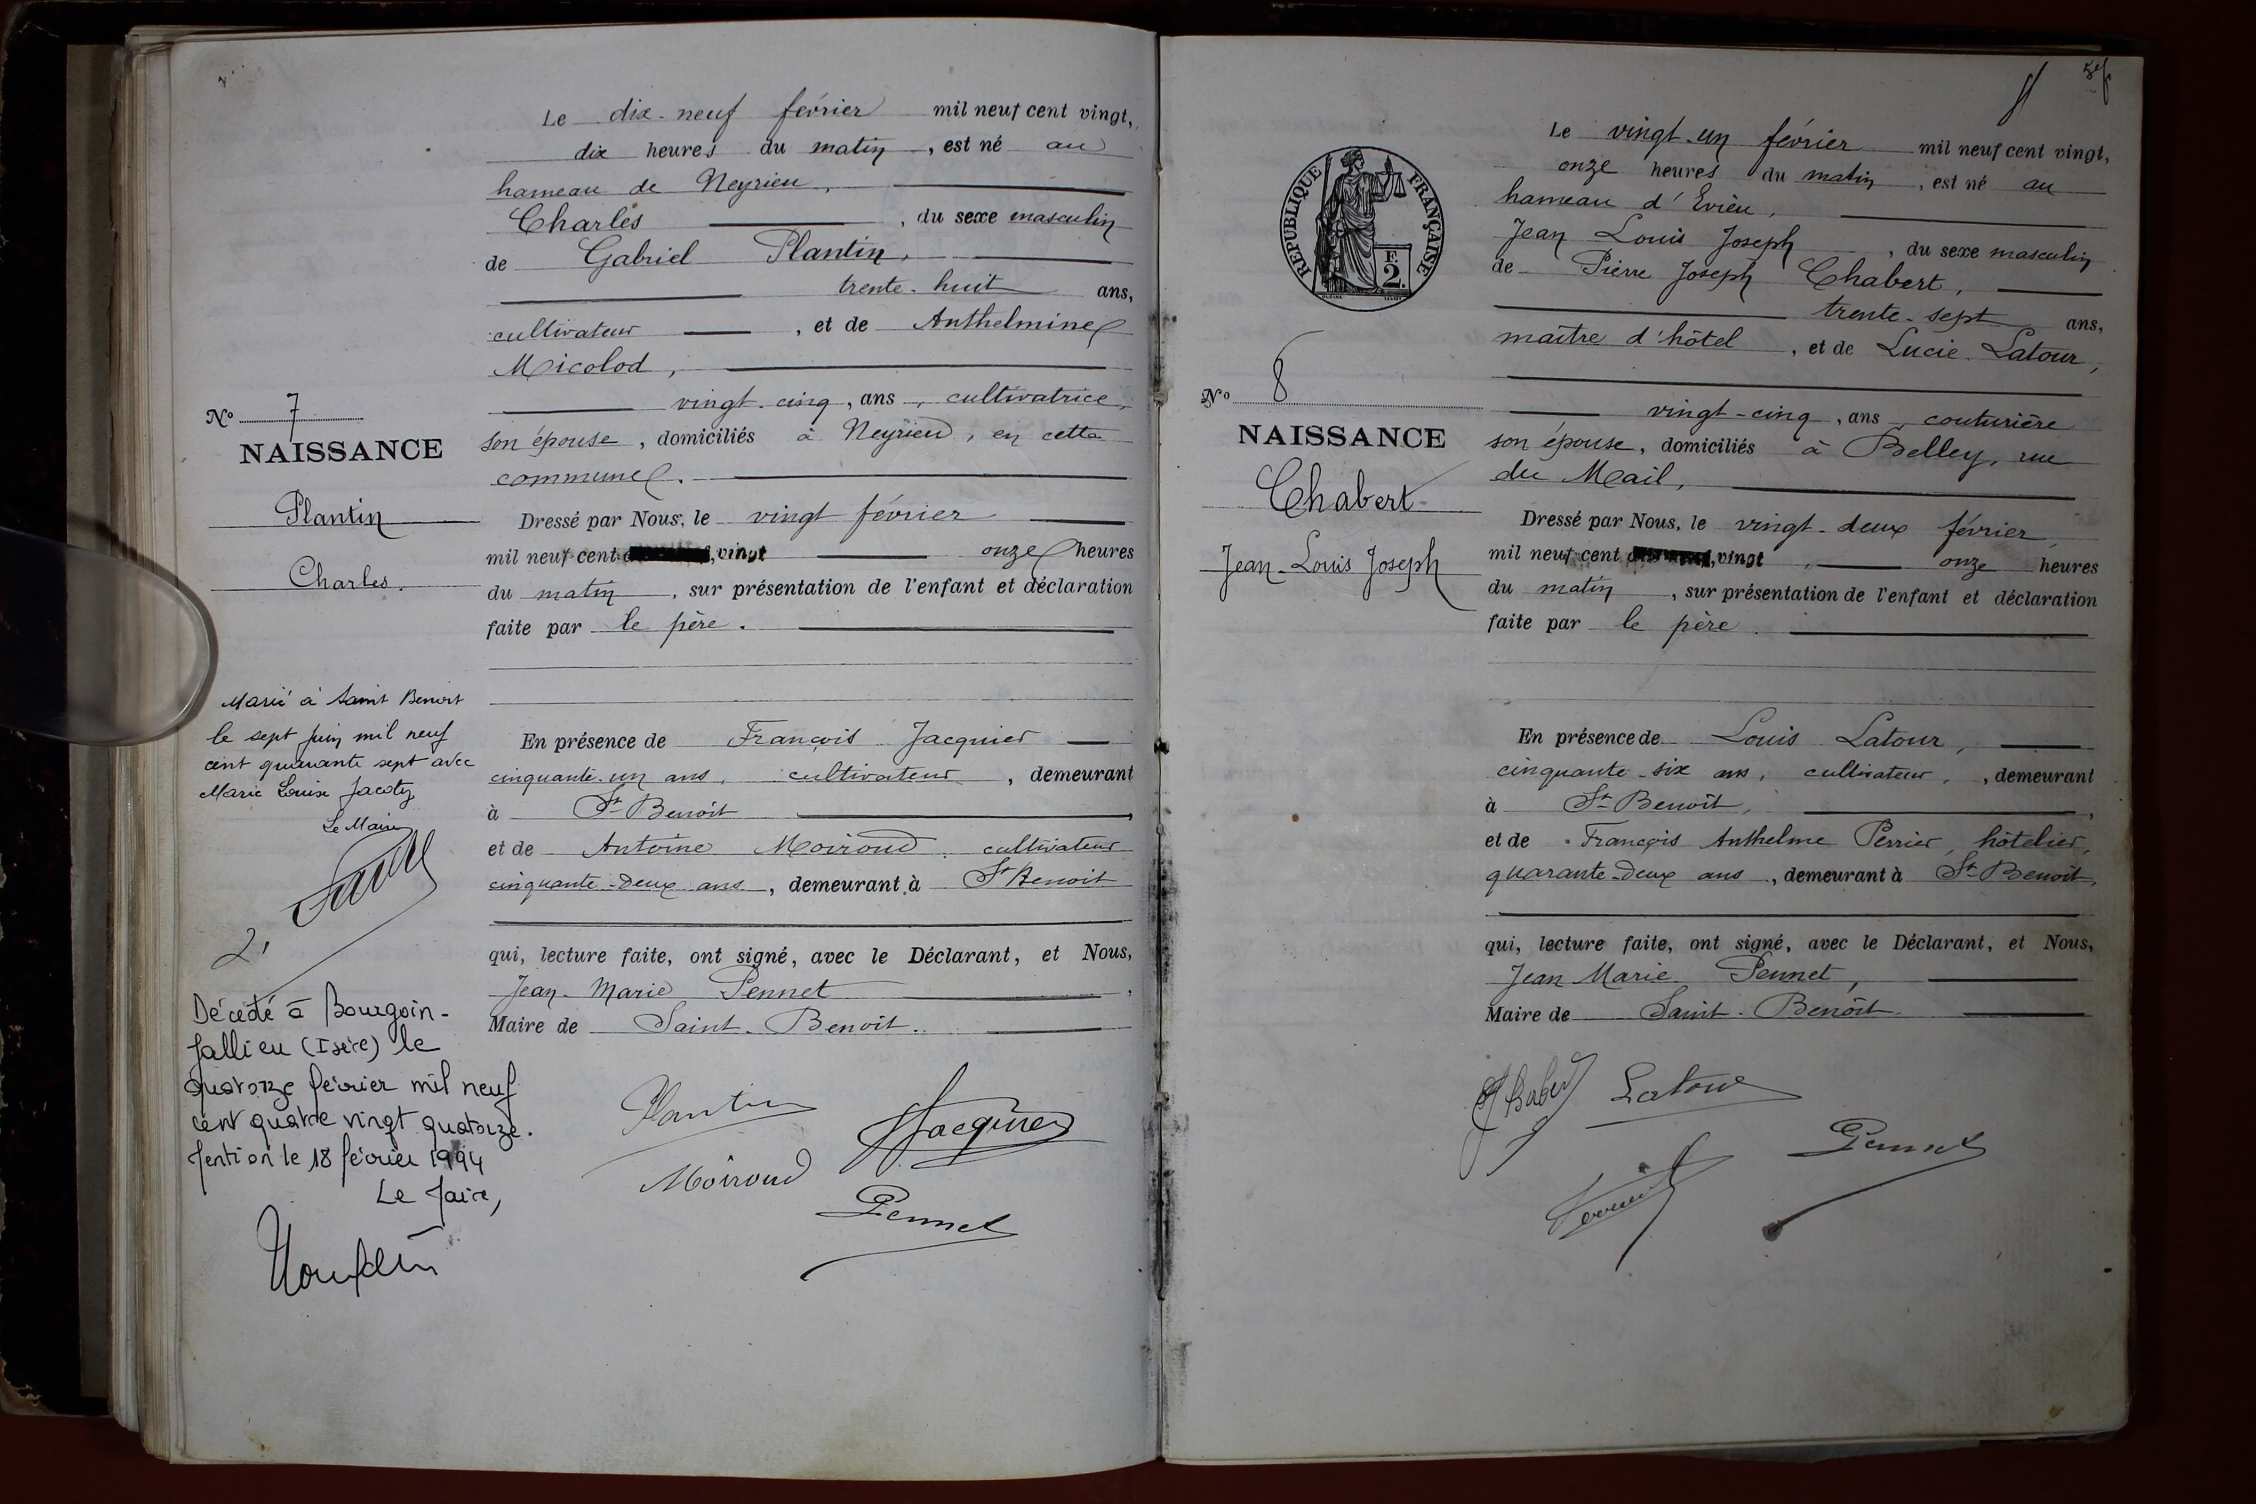 Le dix-neuf février mil neuf cent vingt,
dix heures du matin, est né au
hameau de Neyrieu,
Charles, du sexe masculin
de Gabriel Plantin,
trente-huit ans,
cultivateur, et de Anthelmine
Micolod,
vingt-cinq, ans, cultivatrice,
son épouse, domiciliés à Neyrieu, en cette
commune.
Dressé par Nous, le vingt février
mil neuf cent, vingt onze heures
du matin, sur présentation de l'enfant et déclaration
faite par le père.
En présence de François Jacquier
cinquante-un ans, cultivateur, demeurant
à St Benoît,
et de Antoine Moiroud, cultivateur
cinquante-deux ans, demeurant à St Benoit
qui, lecture faite, ont signé, avec le Déclarant, et Nous,
Jean-Marie Pennet,
Maire de Saint-Benoit.
Plantin
Jacquier
Moiroud
Pennet
No 7
NAISSANCE
Plantin
Charles.
Marié à Saint Benoit
le sept juin mil neuf
cent quarante sept avec
Marie Louise Jacoty
Le Maire
2,
Décédé à Bourgoin-
Jallieu (Isère) le
quatorze février mil neuf
cent quatre vingt quatorze.
Mention le 18 février 1994
Le Maire,
Le vingt-un février mil neuf cent vingt,
onze heures du matin, est né au
hameau d'Evieu,
Jean Louis Joseph, du sexe masculin
de Pierre Joseph Chabert,
trente-sept ans,
maître d'hôtel, et de Lucie Latour,
vingt-cinq, ans couturière
son épouse, domiciliés à Belley, rue
du Mail,
Dressé par Nous, le vingt-deux février,
mil neuf cent, vingt, onze heures
du matin, sur présentation de l'enfant et déclaration
faite par le père.
En présence de Louis Latour,
cinquante-six ans, cultivateur, demeurant
à St Benoît,
et de François Anthelme Perrier, hôtelier,
quarante-deux ans, demeurant à St Benoît,
qui, lecture faite, ont signé, avec le Déclarant, et Nous,
Jean Marie Pennet,
Maire de Saint-Benoît.
Chabert
Latour
Pennet
Perrier
RÉPUBLIQUE FRANÇAISE
F. 2.
No 8
NAISSANCE
Chabert
Jean-Louis Joseph